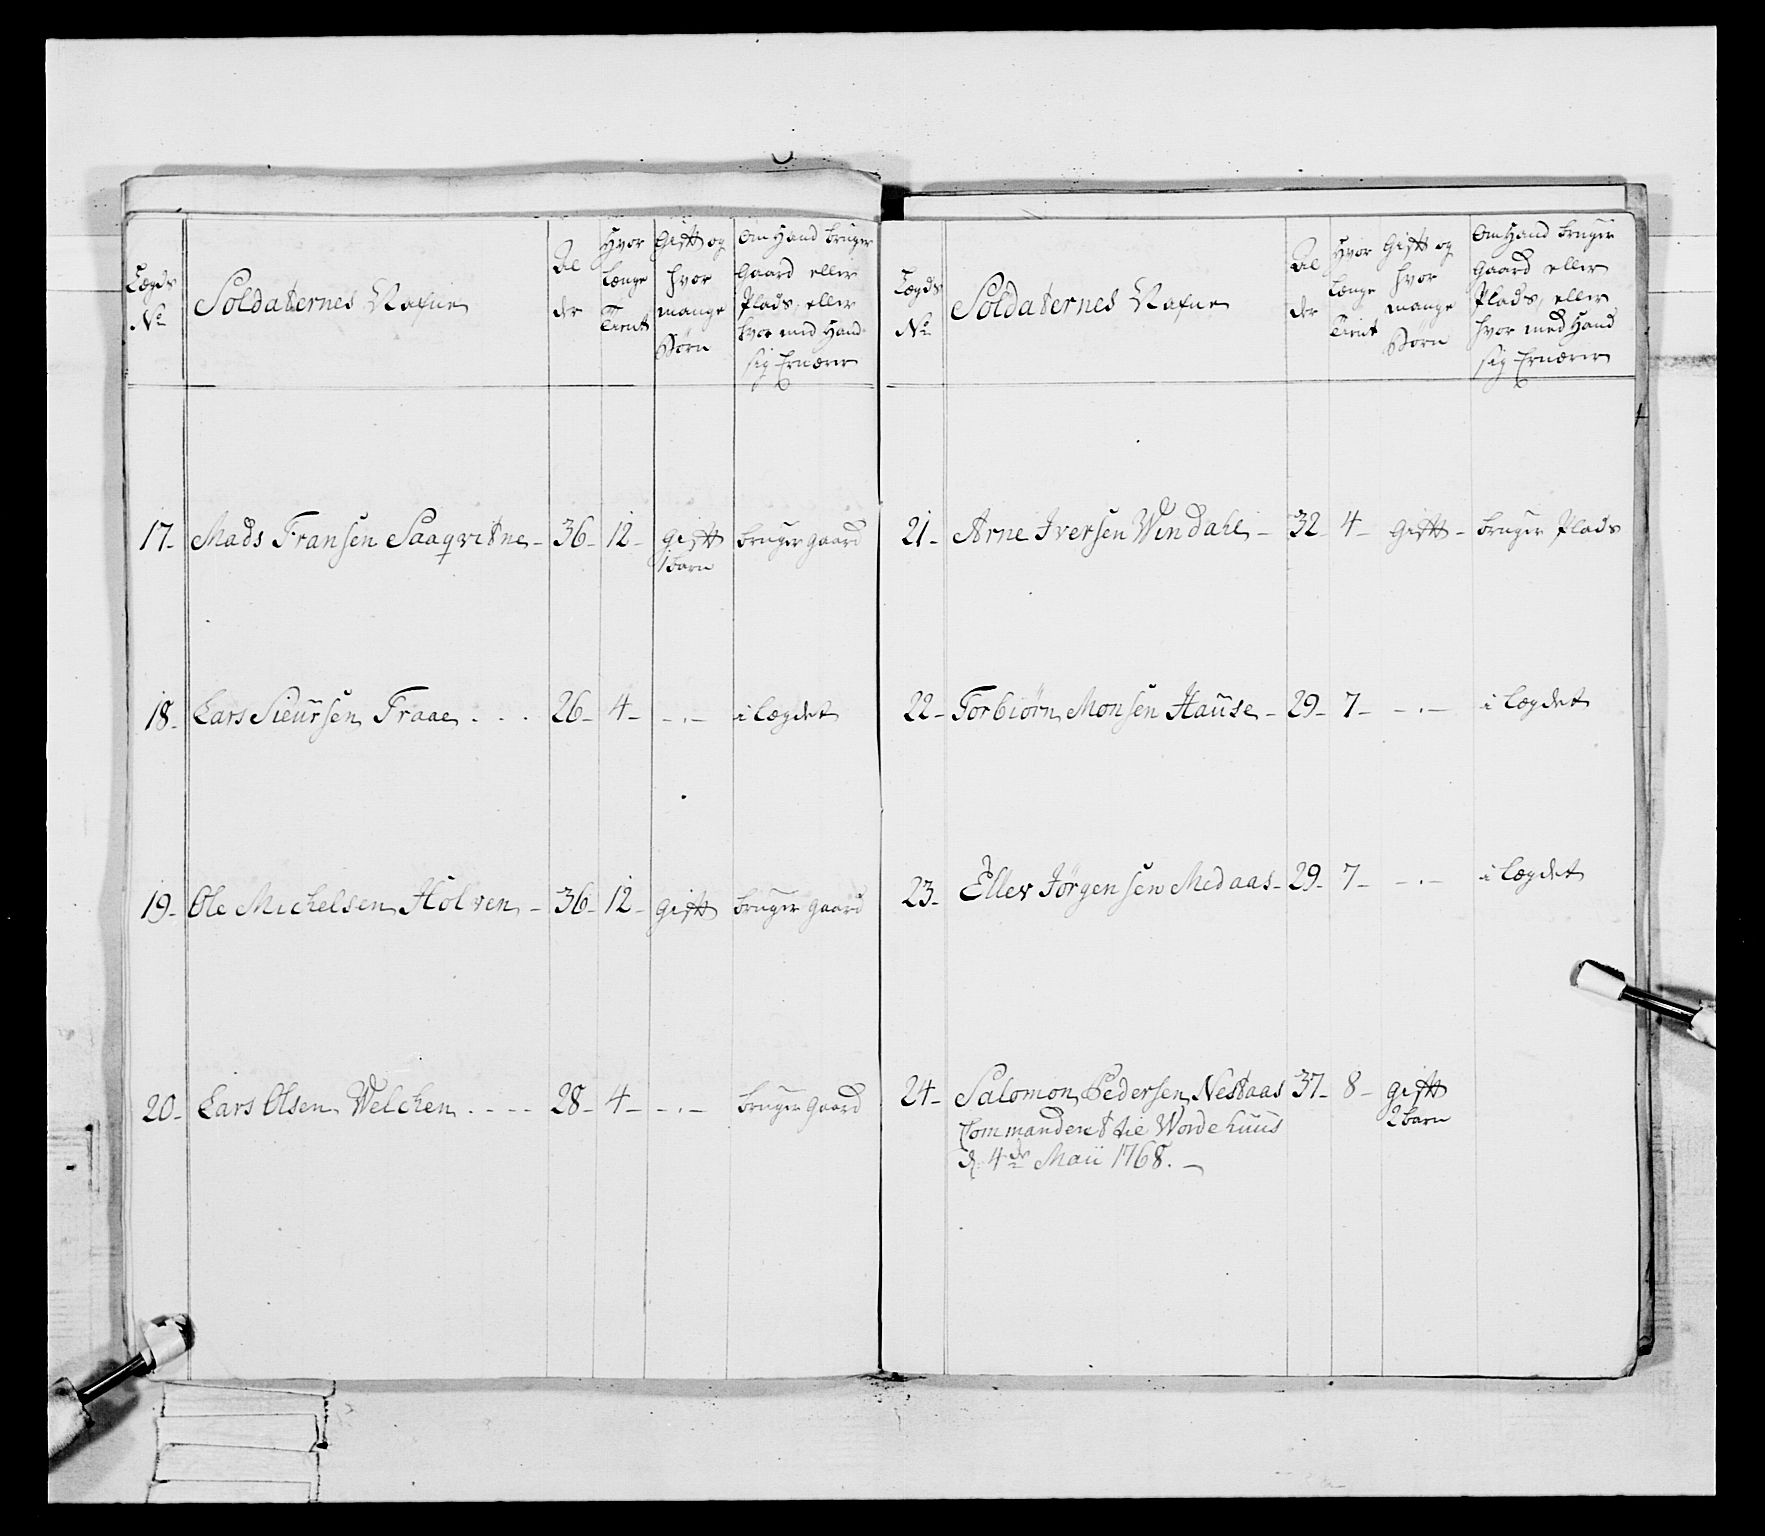 Lægds No
Soldaternes Nafne
Al der
Hvor Længe Tient
Gift og hvor mange Børn
Om Hand bruger Gaard eller Plads, eller hvor med Hand sig Ernærer
17- Mads Fransen Saaqvitne - 36- 12- gift 1 barn bruger gaard
18- Lars Sieursen Traae - - - 26- 4- -.- i Lægdet
19- Ole Michelsen Holven - 36- 12- gift bruger gaard
20- Lars Olsen Welchen - - - - 28- 4- -.- bruger gaard
Lægds No
Soldaternes Nafne
Al der
Hvor Længe Tient
Gift og hvor mange Børn
Om Hand bruger Gaard eller Plads, eller hvor med Hand sig Ernærer
21- Arne Iversen Windahl - 32- 4- Gift - bruger Plads
22- Torbiørn Monsen Hause - 29- 7- -.- i Lægdet
23- Ellev Jörgensen Medaas- 29- 7- -.- i Lægdet
24- Salomon Pedersen Nestaas 37- 8- gift 2 barn
Commanderet til Wordehuus
d. 4de Maii 1768. -